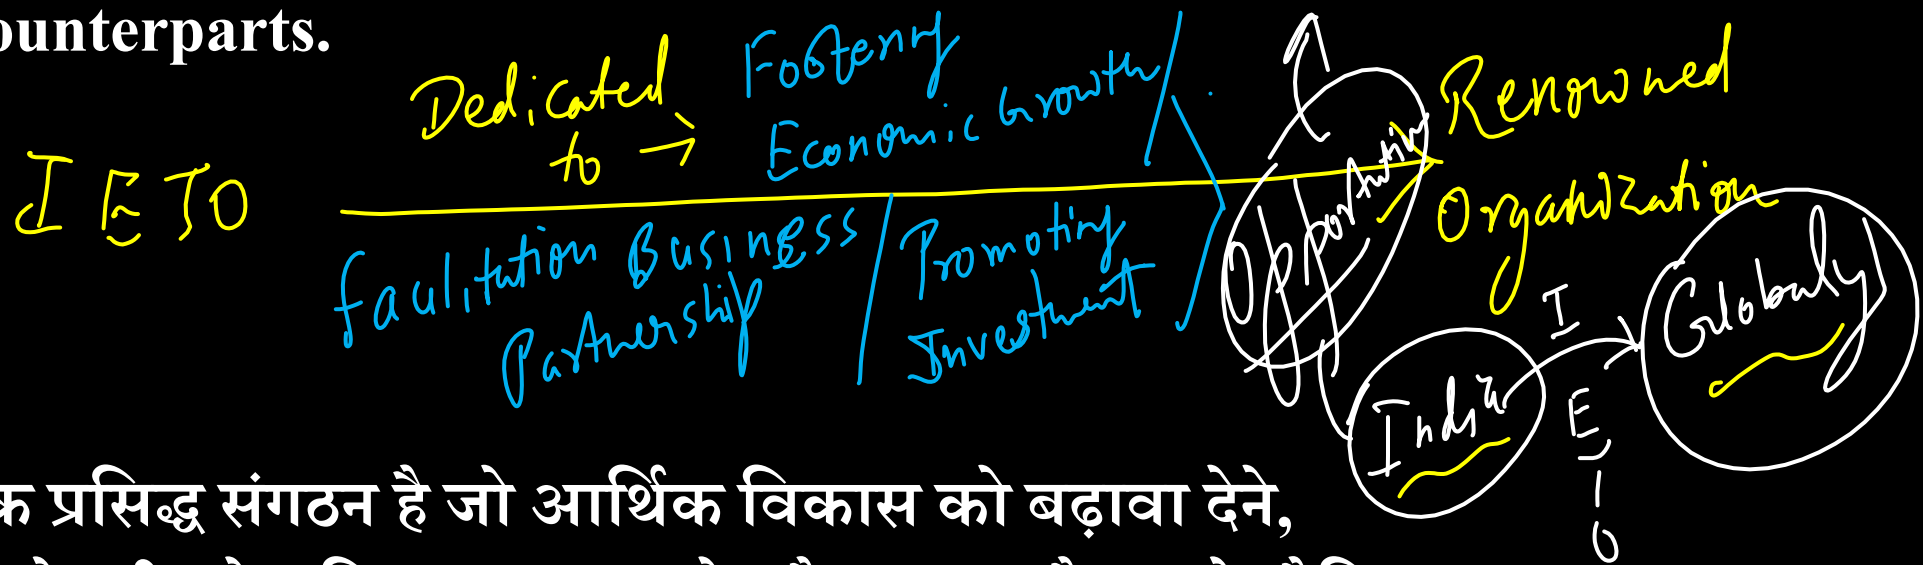 ounterparts.
IETO
Dedicated to → Fostering Economic Growth /
Facilitation Business Partnership / Promoting Investment
Opportunities
Renowned Organization
India
I E T O
Globaly
क प्रसिद्ध संगठन है जो आर्थिक विकास को बढ़ावा देने,